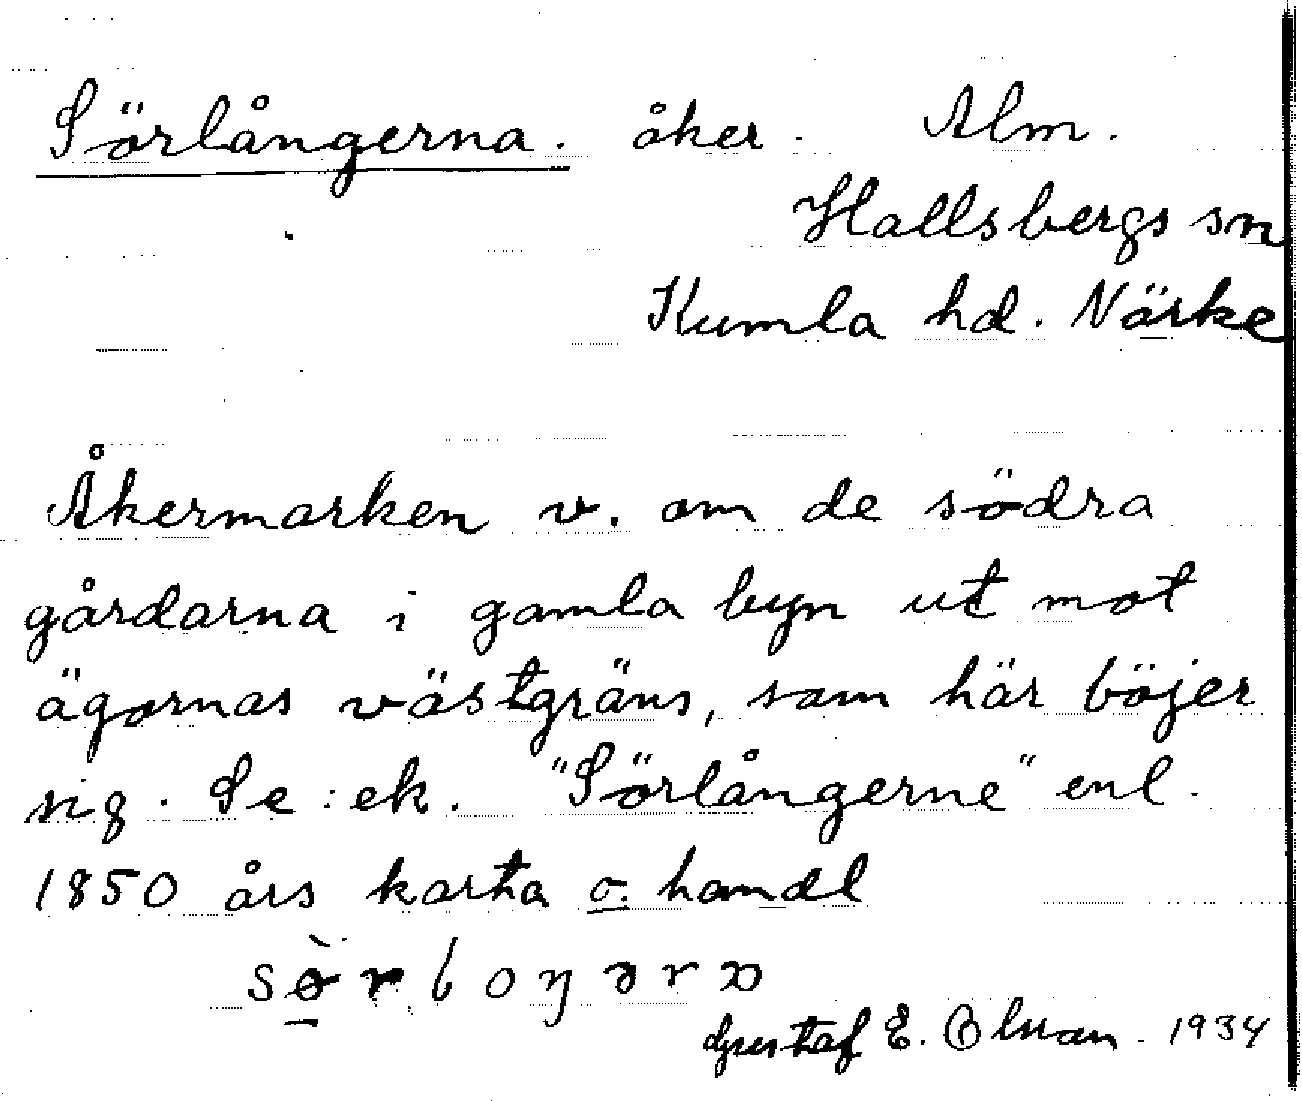 Sörlångerna. åker. Alm.
Hallsbergs sn
Kumla hd. Närke
Åkermarken v. om de södra
gårdarna i gamla byn ut mot
ägornas västgräns, som här böjer
sig. Se: ek. "Sörlångerne" enl.
1850 års karta o. handl
Gustaf E. 1934